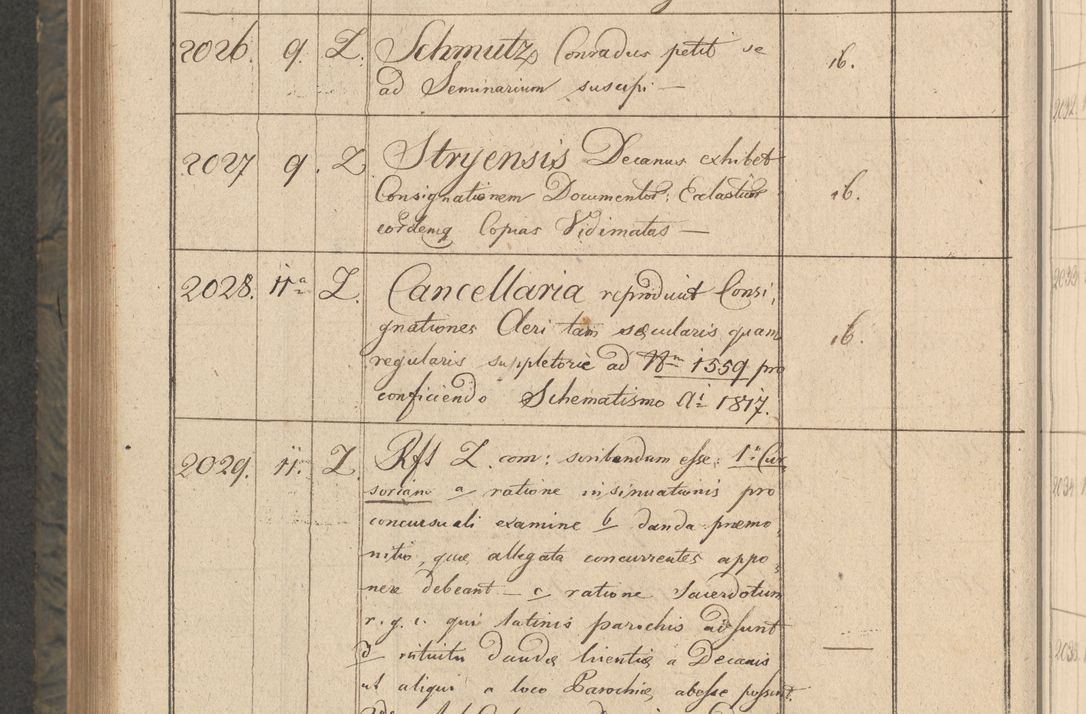 2026. 9. Z. Schmutz Conradus petit se ib.
ad Seminarium suscipi —
2027 9. Z Stryensis Decanus exhibet
Consignationem Documentor: ib.
eordemq Copias Vidimatas —
2028. 11a Z. Cancellaria reproducit Consi,
gnationes Cleri tam sæcularis quam
regularis suppletorie ad Nm 1559 pro ib.
conficiendo Schematismo Ai 1817.
2029. 11. Z. Rfs Z. com: scribendum esse: 1o Cur
soriam a ratione insinuationis pro
concursuali examine b danda præmo,
nitio, quæ allegata concurrentes appo,
nere debeant — c ratione Sacerdotum
r. g. c. qui latinis parochis adsunt
d intuitu dandæ licentiæ a Decanis —
ut aliqui a loco Parochiæ abesse possint.